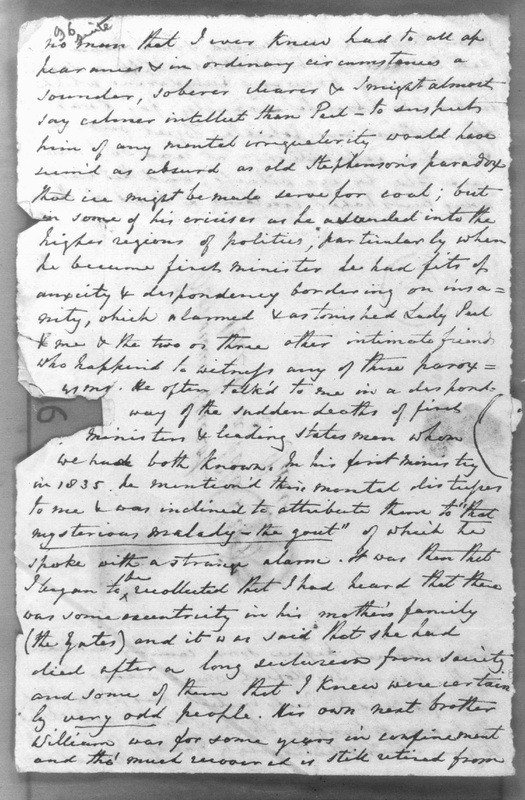 no man that I ever knew had to all ap
pearances & in ordinary circumstances a
sounder, soberer clearer & I might almost
say calmer intellect than Peel – to suspect
him of any mental irregularity would have
seem'd as absurd as old Stephenson's paradox
that ice might be made serve for coal; but
in some of his crisises as he ascended into the
higher regions of politics, particularly when
he became first minister he had fits of
anxiety & despondency bordering on insa=
nity, which alarmed & astonished Lady Peel
& me & the two or three other intimate friends
who happen'd to witness any of these parox=
ysms. He often talk'd to me in a despond-
way of the sudden deaths of first
ministers & leading statesmen whom
we had both known. In his first ministry
in 1835 he mention'd this mental distresses
to me & was inclined to attribute them to "that
mysterious malady – the gout" of which he
spoke with a strange alarm. It was then that
I began to be recollected that I had heard that there
was some eccentricity in his mother's family
(the Yates) and it was said that she had
died after a long seclusion from society
and some of them that I knew were certain
ly very odd people. His own next brother
William was for some years in confinement
and tho' much recovered is still retired from
6